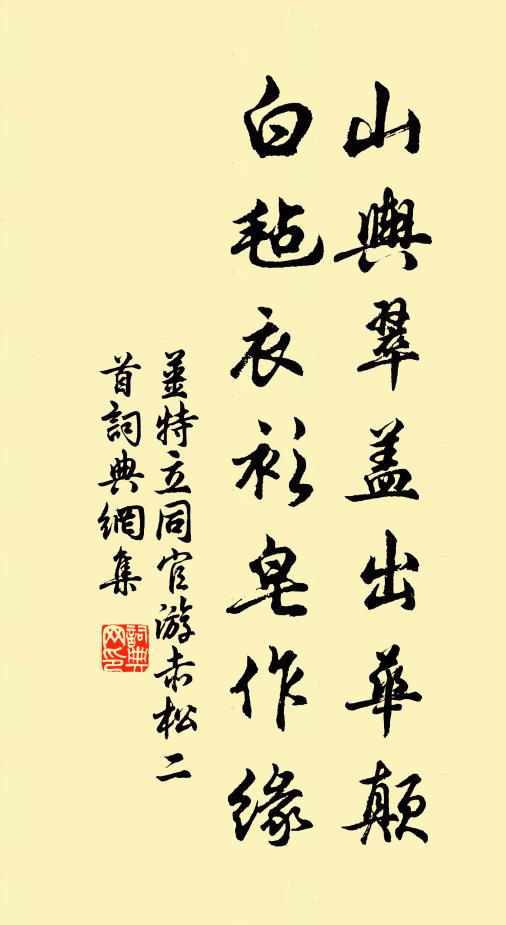 山輿翠蓋出華顛
白毡衣衫皂作緣
姜特立同官游赤松二
首詞典網集
詞典
网印